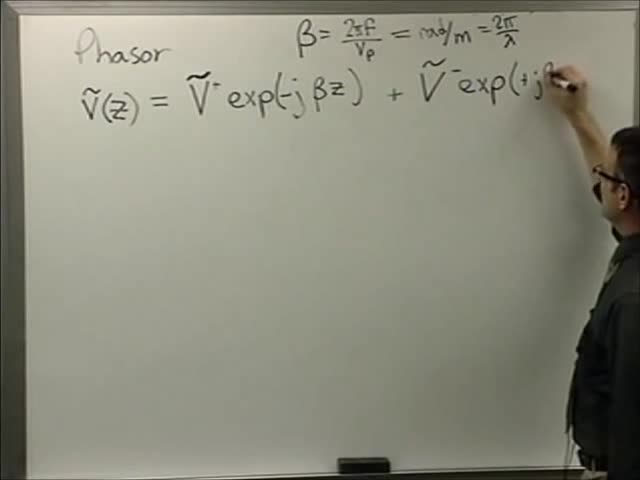 Phasor
β = 2πf/Vp = rad/m = 2π/λ
Ṽ(z) = Ṽ⁺ exp(-j βz) + Ṽ⁻ exp(+jβ